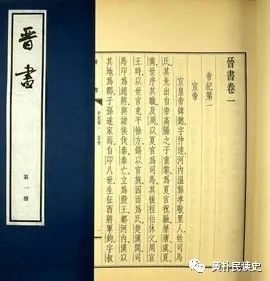 晉書
第一册
晉書卷一
帝紀第一
宣帝
宣皇帝諱懿字仲達河內溫縣孝敬里人姓司馬
氏其先出自帝高陽之子重黎爲夏官祝融歷唐虞夏
商世序其職及周以夏官爲司馬其後程伯休父周宣
王時以世官克平徐方錫以官族因而爲氏楚漢間司
馬卬爲趙將與諸侯伐秦秦亡立爲殷王都河內漢以
其地爲郡子孫遂家焉自卬八世生征西將軍鈞字叔
黄朴民读史